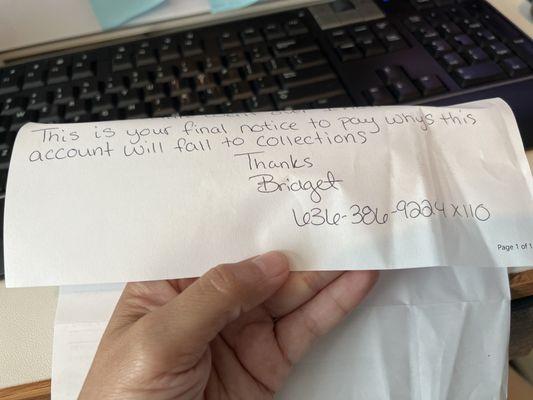 This is your final notice to pay whys this
account will fall to collections
Thanks
Bridget
636-386-9224 x110
Page 1 of 1